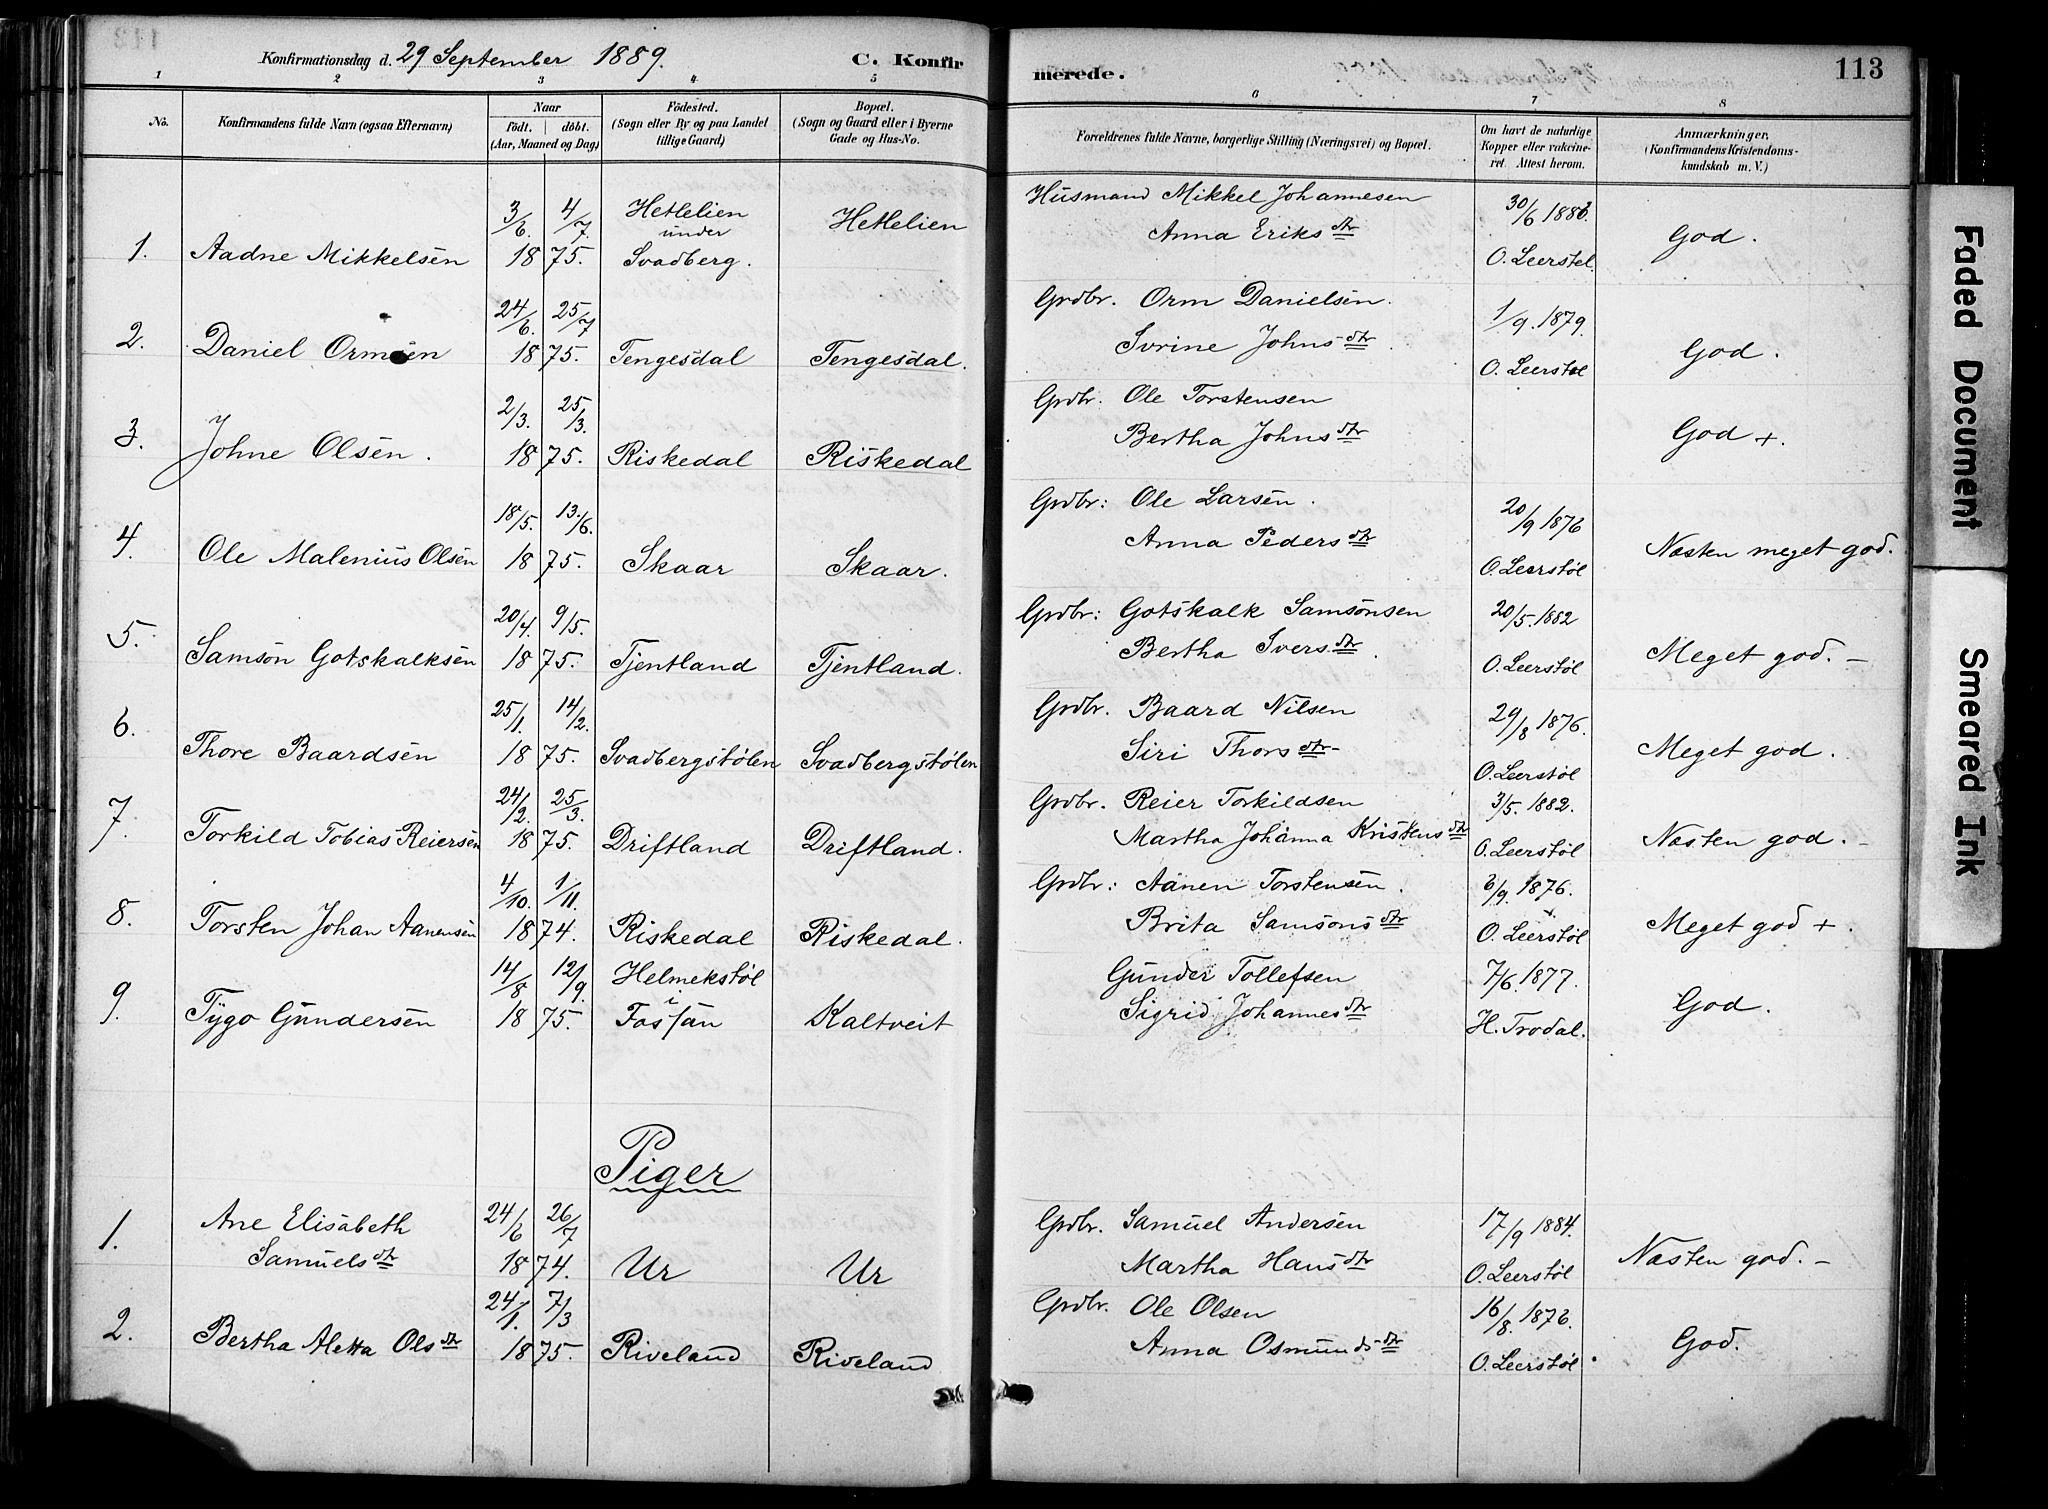 Konfirmationsdag d. 29 September 1889. C. Konfirmerede. 113
1 2 3 4 5 6 7 8
No. Konfirmandens fulde Navn (ogsaa Efternavn) Naar födt. döbt. (Aar, Maaned og Dag) Födested. (Sogn eller By og paa Landet tillige Gaard) Bopæl. (Sogn og Gaard eller i Byerne Gade og Hus-No. Forældrenes fulde Navne, borgerlige Stilling (Næringsvei) og Bopæl. Om havt de naturlige Kopper eller vakcineret. Attest herom. Anmærkninger, (Konfirmandens Kristendomskundskab m. V.)
3/6. 4/7. Hetlelien under Hetlelien Husmand Mikkel Johannesen 30/6 1883.
1. Aadne Mikkelsen 1875. Svadberg. Anna Eriksdtr O. Leerstøl. God.
24/6. 25/7 Grdbr. Orm Danielsen. 1/9. 1879.
2. Daniel Ormsen 1875. Tengesdal Tengesdal. Ivrine Johnsdtr. O. Leerstøl God.
2/3. 25/3. Grdbr. Ole Torstensen
3. Johne Olsen. 1875. Riskedal Riskedal Bertha Johnsdtr God +.
18/5. 13/6. Grdbr: Ole Larsen. 20/9 1876
4. Ole Malenius Olsen 1875. Skaar Skaar. Anna Pedersdtr O. Leerstøl Næsten meget god.
20/4. 9/5. Grdbr: Gotskalk Samsonsen 20/5. 1882
5. Samson Gotskalksen 1875. Tjentland Tjentland. Bertha Iversdtr. O. Leerstøl Meget god. –
25/1. 14/2. Grdbr. Baard Nilsen 29/8 1876.
6. Thore Baardsen 1875. Svadbergstølen Svadbergstølen Siri Thorsdtr– O. Leerstøl Meget god.
24/2. 25/3. Grdbr. Reier Torkildsen 3/5. 1882.
7. Torkild Tobias Reiersen 1875. Driftland Driftland. Martha Johanna Kristensdtr O. Leerstøl Næsten god. –
4/10. 1/11. Grdbr: Aanen Torstensen. 6/9. 1876.
8. Torsten Johan Aanensen 1874. Riskedal Riskedal. Brita Samsonsdtr O. Leerstøl Meget god +.
14/8 12/9. Helmekstøl i Gunder Tollefsen 7/6. 1877.
9. Tygo Gundersen 1875. Fossan Kaltveit Sigrid Johannesdtr H. Trodal. God.
Piger
24/6 26/7 Grdbr. Samuel Andersen 17/9 1884.
1. Ane Elisabeth Samuelsdtr 1874. Ur Ur Martha Hansdtr O. Leerstøl Næsten god. –
24/1. 7/3 Grdbr. Ole Olsen 16/8. 1876.
2. Bertha Aletta Olsdtr 1875. Riveland Riveland Anna Osmundsdtr O. Leerstøl. God.
Faded Document
Smeared Ink